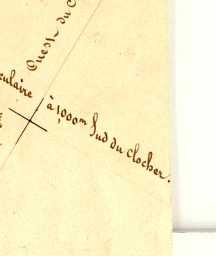 Ouest du C
culaire
à 1,000m Sud du clocher.